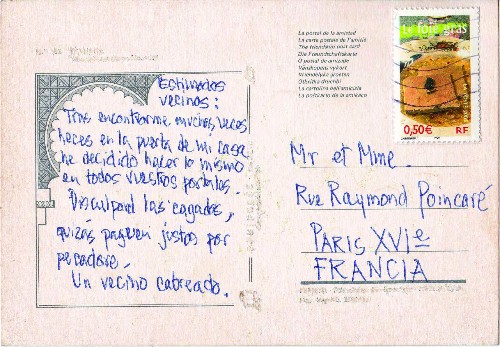 Estimados
vecinos:
Tras encontrarme muchas veces
heces en la puerta de mi casa
he decidido hacer lo mismo
en todos vuestros portales.
Disculpad las cagadas,
quizás paguen justos por
pecadores.
Un vecino cabreado.
La postal de la amistad
La carte postale de l'amitié
The friendship post card
Die Freundschaftskarte
O postal da amizade
Vänskapens vykort
Vriendelijke groeten
La cartolina dell'amicizia
Le foie gras
0,50€ RF
Mr et Mme.
Rue Raymond Poincaré
PARIS XVIe
FRANCIA